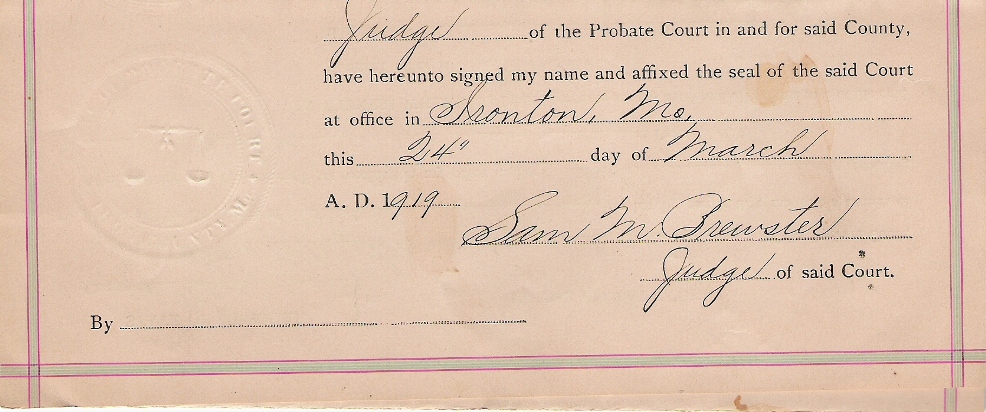 Judge of the Probate Court in and for said County,
have hereunto signed my name and affixed the seal of the said Court
at office in Ironton, Mo,
this 24" day of March
A. D. 1919
Sam M. Brewster
Judge of said Court.
By